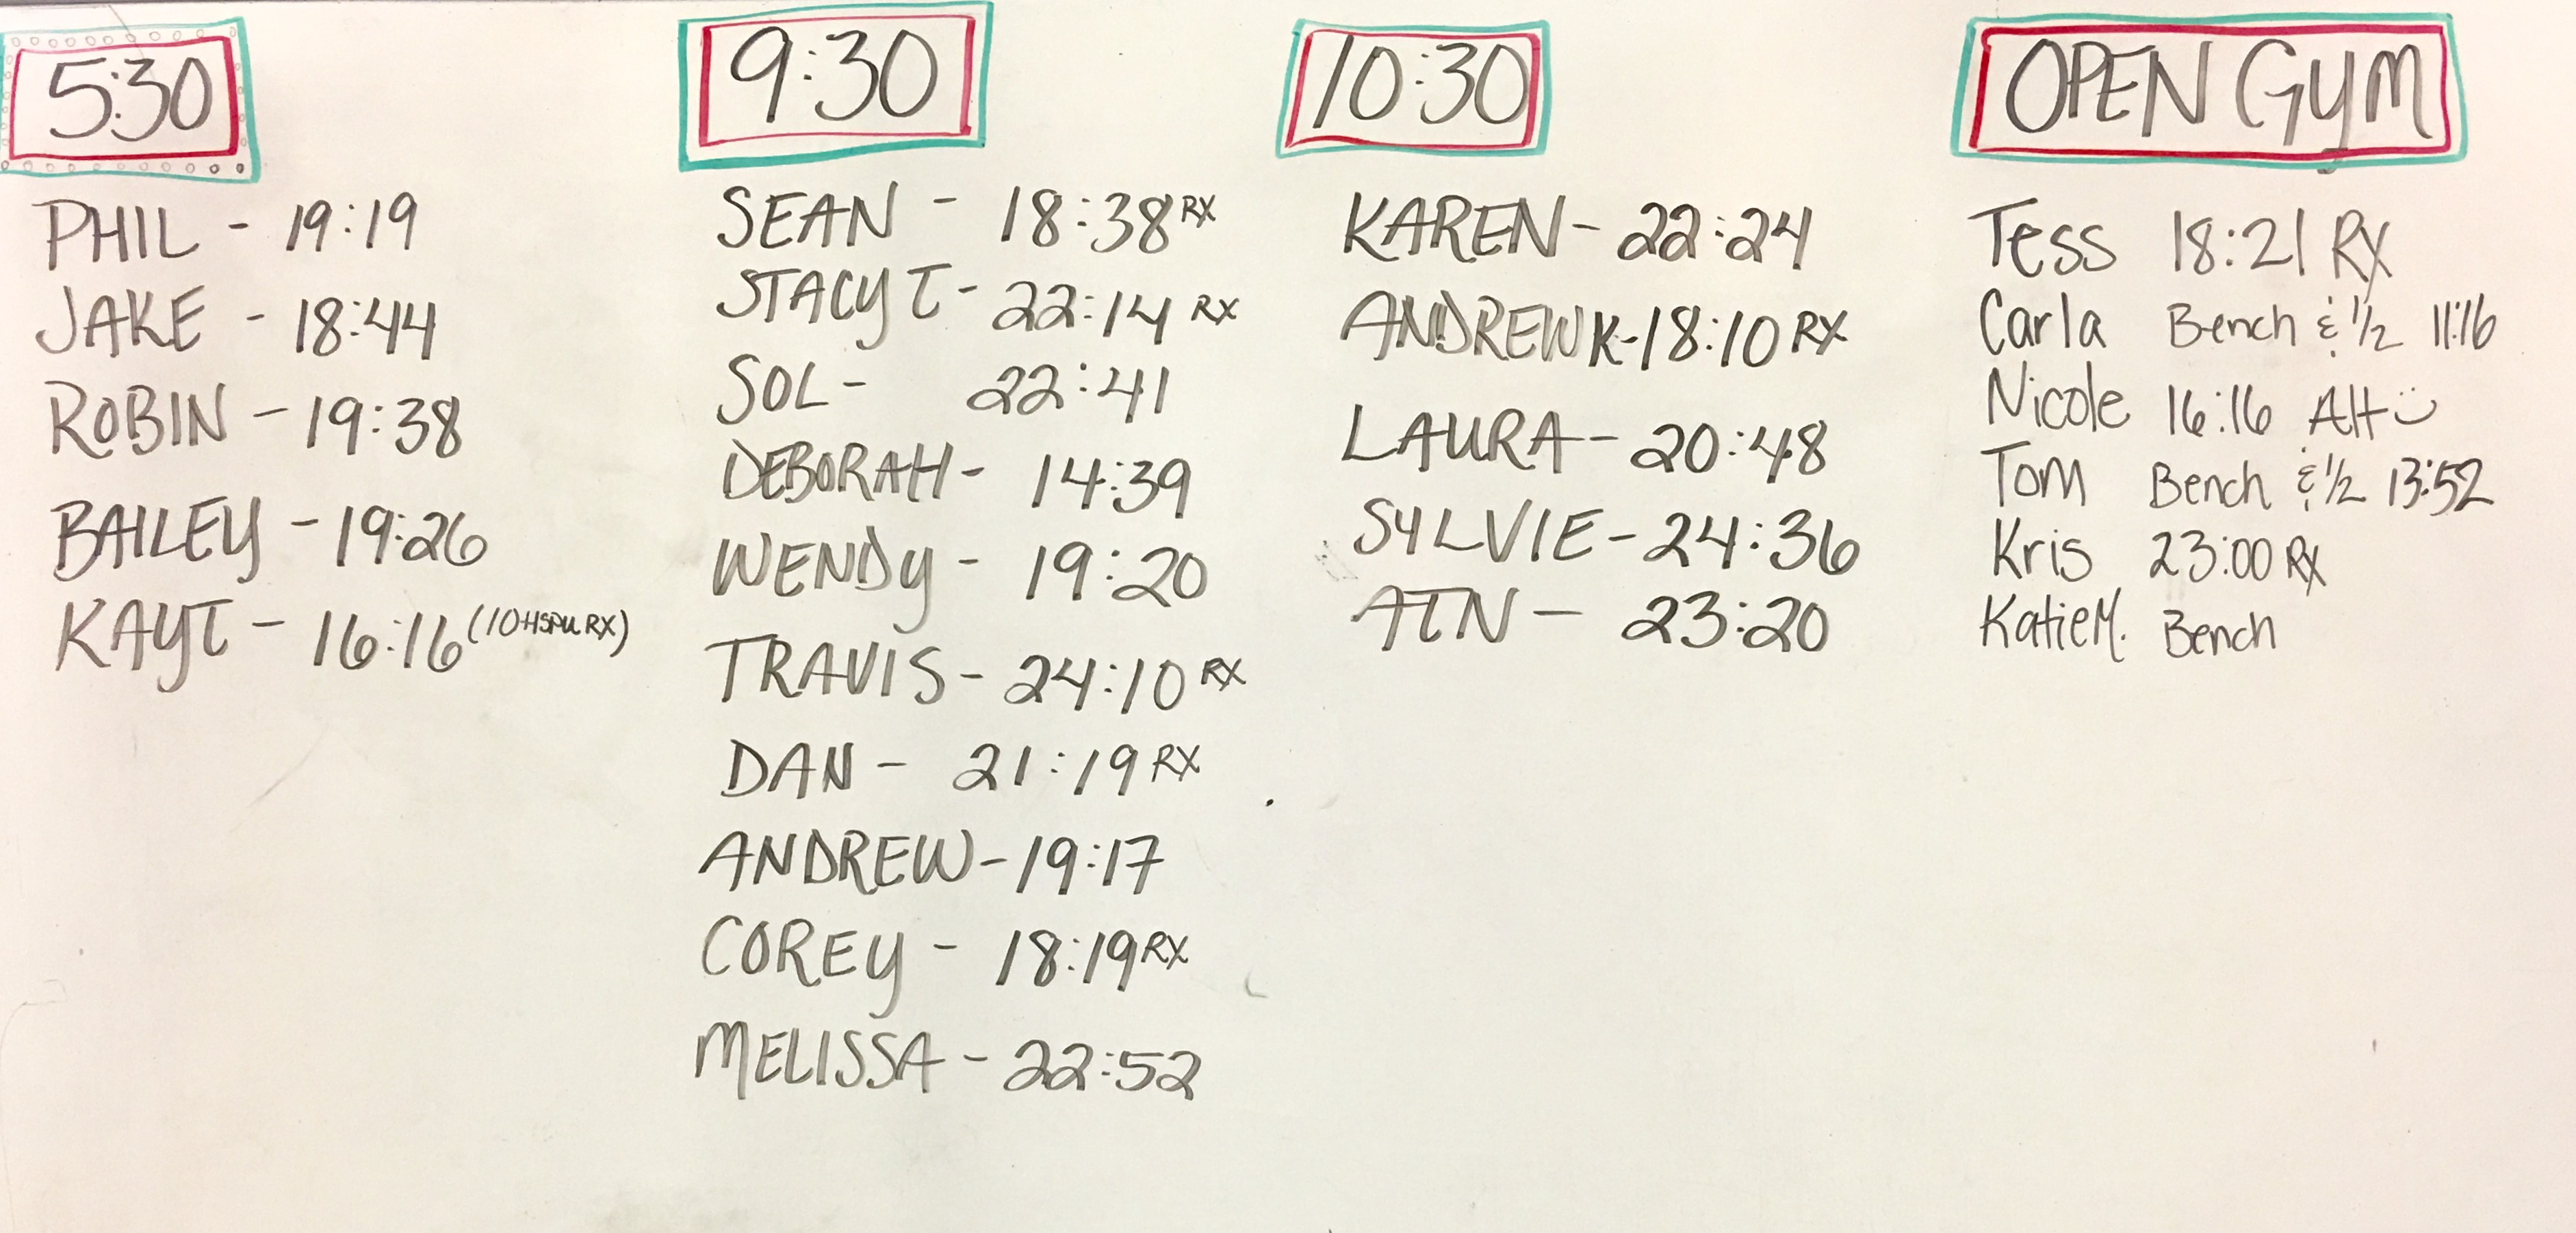 5:30
PHIL - 19:19
JAKE - 18:44
ROBIN - 19:38
BAILEY - 19:26
KAYT - 16:16 (10 HSPU RX)
9:30
SEAN - 18:38 RX
STACY T - 22:14 RX
SOL - 22:41
DEBORAH - 14:39
WENDY - 19:20
TRAVIS - 24:10 RX
DAN - 21:19 RX
ANDREW - 19:17
COREY - 18:19 RX
MELISSA - 22:52
10:30
KAREN - 22:24
ANDREW K - 18:10 RX
LAURA - 20:48
SYLVIE - 24:36
ATN - 23:20
OPEN GYM
Tess 18:21 RX
Carla Bench & 1/2 11:16
Nicole 16:16 Alt
Tom Bench & 1/2 13:52
Kris 23:00 RX
Katie M. Bench